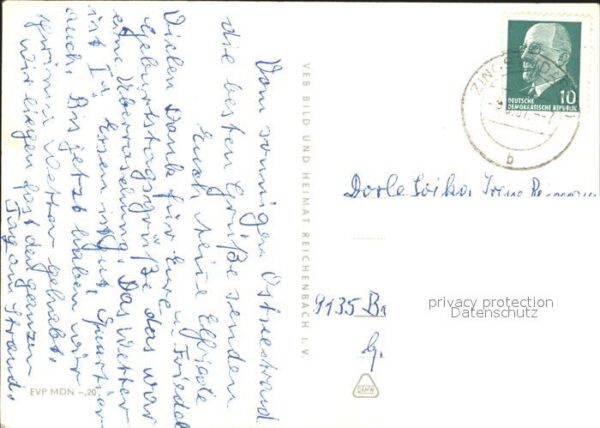 Vom sonnigen Ostseestrand
die besten Grüße senden
Euch Elfriede
u. Friedel
Vielen Dank für Eure
Geburtstagsgrüße das war
eine Überraschung. Das Wetter
ist Ia Essen ist gut, Quartier
auch. Bis jetzt haben wir
prima Wetter gehabt.
Wir liegen fast den ganzen
Tag am Strand.
EVP MDN -,20
VEB BILD UND HEIMAT REICHENBACH I. V.
DEUTSCHE
DEMOKRATISCHE REPUBLIK
10
ZINGST
b
9135
privacy protection
Datenschutz